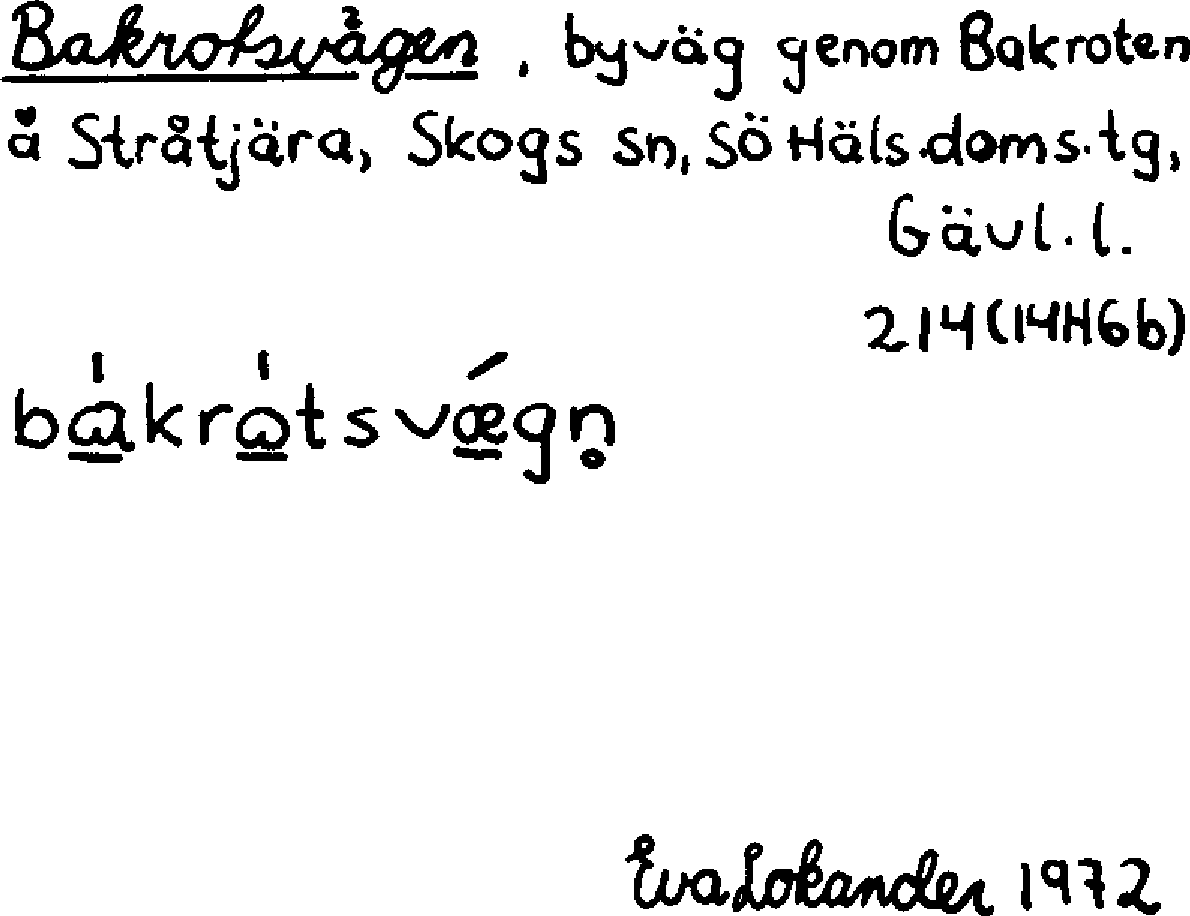 Bakrotsvägen, byväg genom Bakroten
å Stråtjära, Skogs sn, Sö Häls.doms.tg,
Gävl.l.
214(14H6b)
bakrotsvægn̥
Eva Lokander 1972